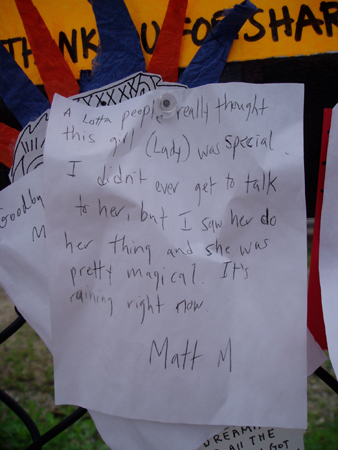 THANK YOU FOR SHAR
A Lotta people really thought
this girl (Lady) was special.
I didn't ever get to talk
to her, but I saw her do
her thing and she was
pretty magical. It's
raining right now.
Matt M
Goodby
M
DREAMI
ALL THE
GOT